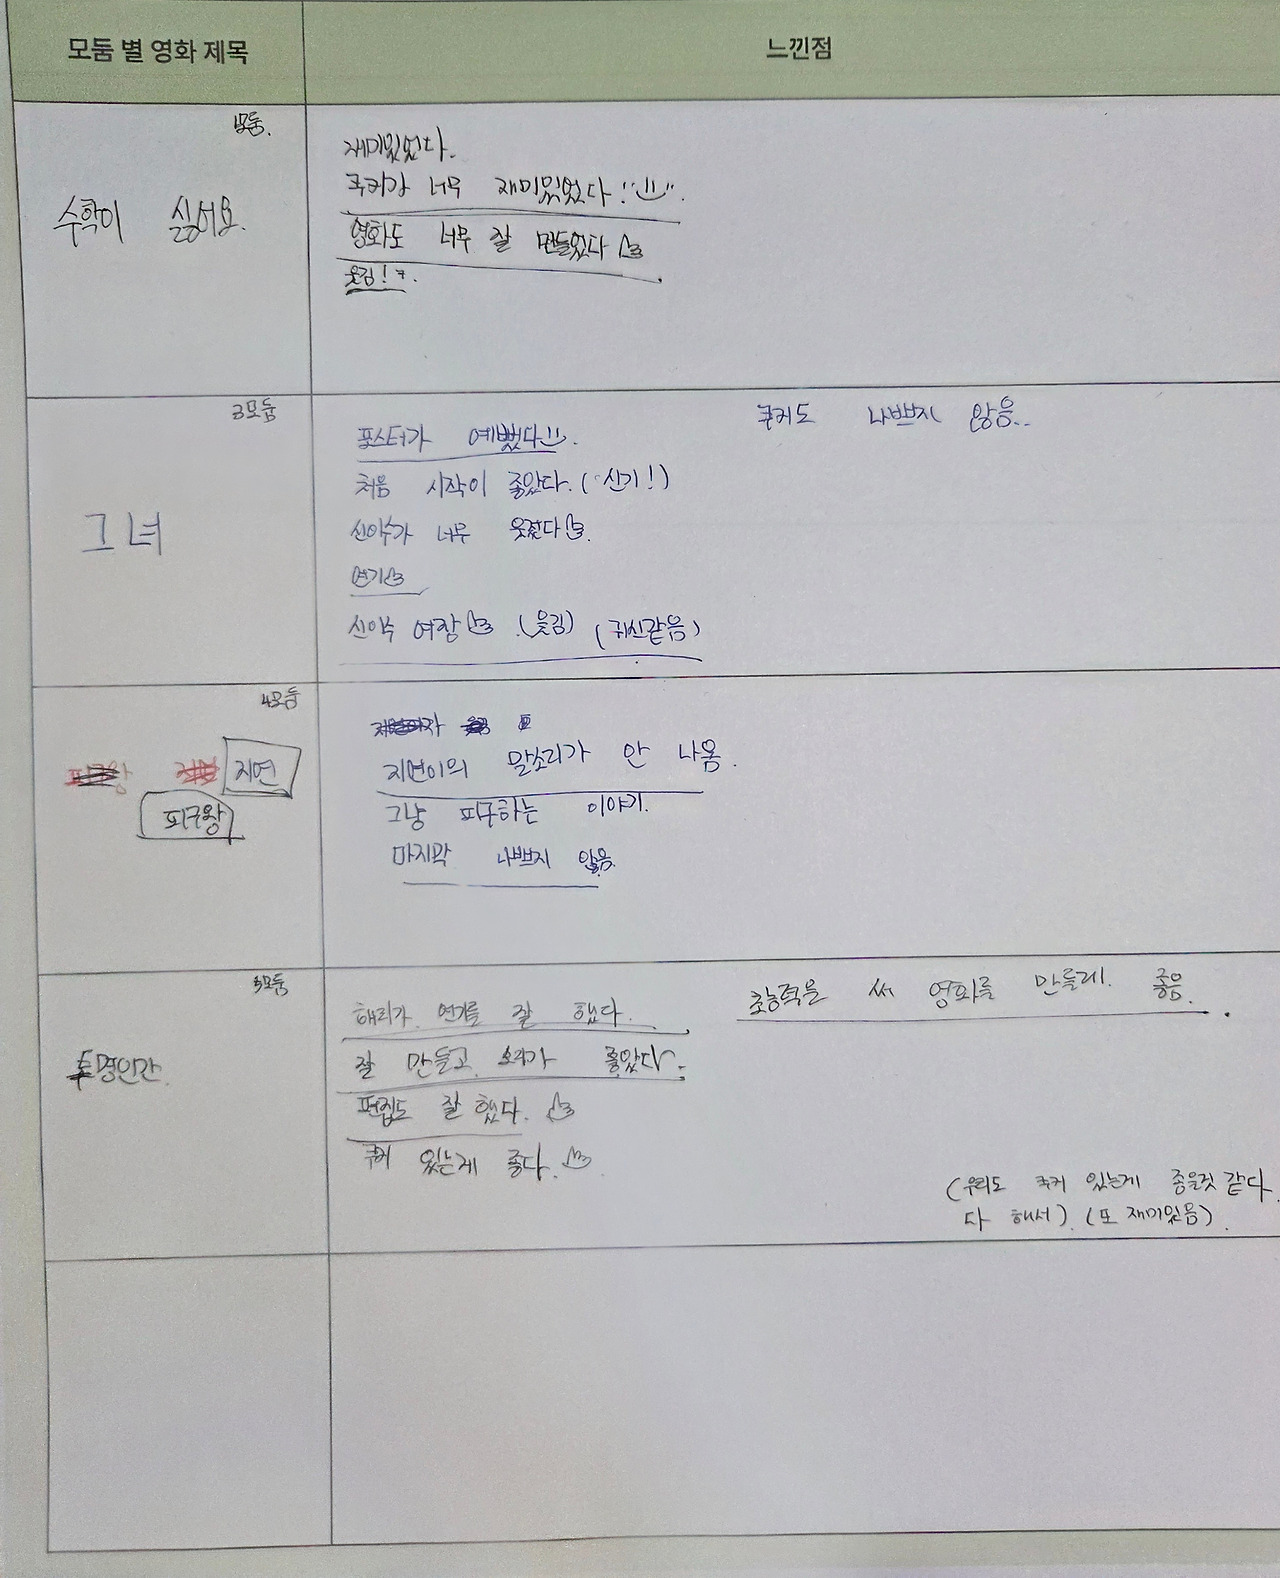 모둠 별 영화 제목
느낀점
1모둠.
수학이 싫어요.
재미있었다.
쿠키가 너무 재미있었다!
영화도 너무 잘 만들었다
웃김!ㅋ.
2모둠
그녀
포스터가 예뻤다
쿠키도 나쁘지 않음..
처음 시작이 좋았다. (신기!)
신이수가 너무 웃겼다
연기
신이수 여장 (웃김) (귀신같음)
4모둠
지연
피구왕
지연이의 말소리가 안 나옴.
그냥 피구하는 이야기.
마지막 나쁘지 않음.
3모둠
투명인간.
해리가 연기를 잘 했다.
초능력을 써 영화를 만들레. 좋음.
잘 만들고 소리가 좋았다.
편집도 잘 했다.
쿠키 있는게 좋다.
(우리도 쿠키 있는게 좋을것 같다.
다 해서). (또 재미있음).